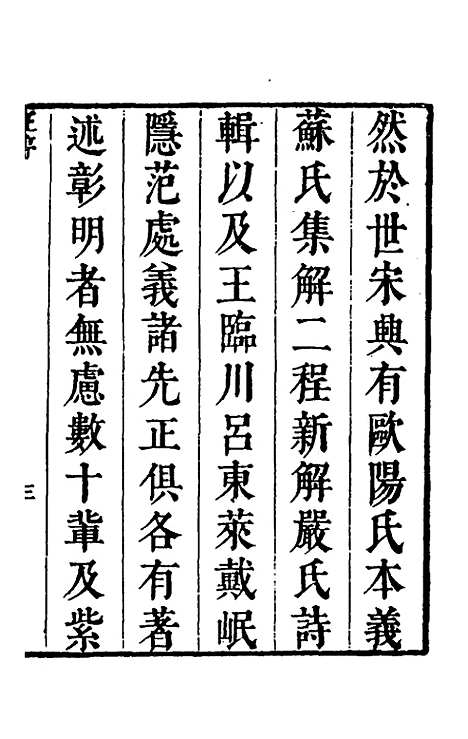 然於世宋興有歐陽氏本義
蘇氏集解二程新解嚴氏詩
輯以及王臨川呂東萊戴岷
隱范處義諸先正俱各有著
述彰明者無慮數十輩及紫
三